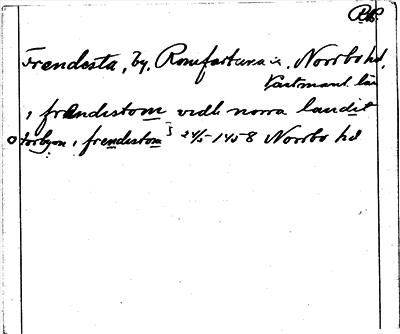 RP.
Frendesta, by, Romfartuna sn, Norrbo hd,
Västmanl. län
i frændistom vidh norra landit
torbyon i frendestom] 24/5 1458 Norrbo hd